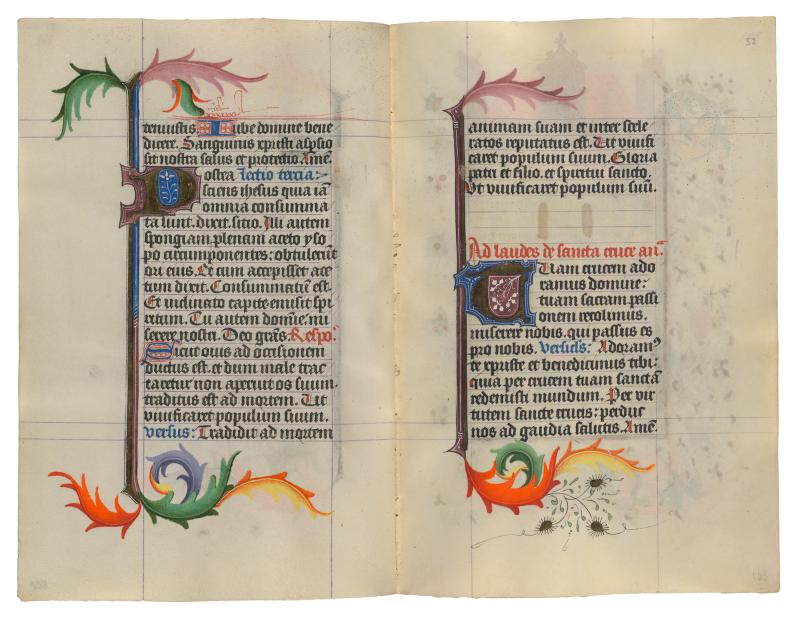 tenuistis Iube domine bene
dicere. Sanguinis xpristi aspsio
sit nostra salus et protectio. Amē.
Postra lectio tercia:
sciens ihesus quia iā
omnia consumma
ta sunt. dixit. sitio. Illi autem
spongiam plenam aceto yso
po circumponentes: obtulerūt
ori eius. Et cum accepisset ace
tum dixit. Consummatū est.
Et inclinato capite emisit spi
ritum. Tu autem domīe. mi
serere nostri. Deo grās. Respō.
Sicut ouis ad occisionem
ductus est. et dum male trac
taretur non aperuit os suum.
traditus est ad mortem. Ut
viuificaret populum suum.
versus: Tradidit ad mortem
52
animam suam et inter scele
ratos reputatus est. Ut viuifi
caret populum suum. Gloria
patri et filio. et spiritui sancto.
Ut viuificaret populum suū.
Ad laudes de sancta cruce an̄.
Tuam crucem ado
ramus domine:
tuam sacram passi
onem recolimus.
miserere nobis. qui passus es
pro nobis. versicls: Adoramꝰ
te xpriste et benedicimus tibi:
quia per crucem tuam sanctā
redemisti mundum. Per vir
tutem sancte crucis: perduc
nos ad gaudia salutis. Amē.